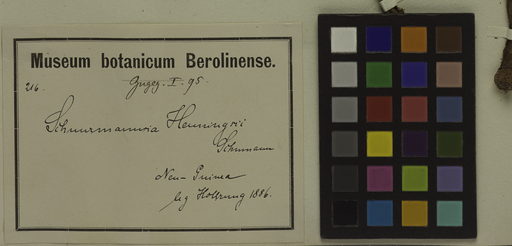 Museum botanicum Berolinense.
216.
Gugez. I. 95
Schuurmansia Henningsii
Schumann
Neu-Guinea
leg Hollrung 1886.